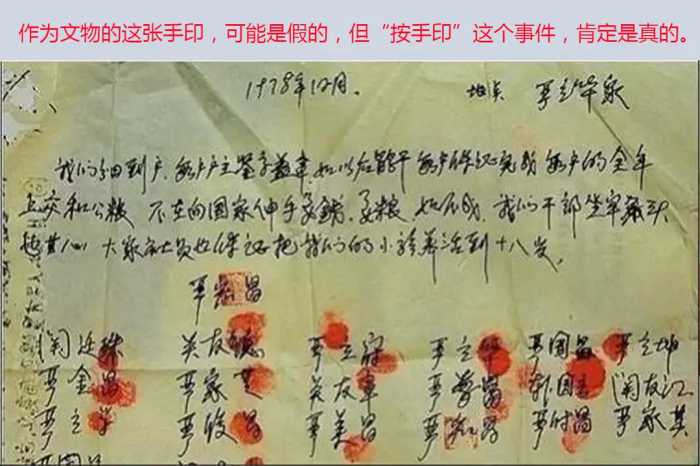 作为文物的这张手印，可能是假的，但“按手印”这个事件，肯定是真的。
1978年12月. 地点 严立华家
我们分田到户，每户户主签字盖章，如以后能干，每户保证完成每户的全年
上交和公粮 不在向国家伸手要钱，要粮，如不成，我们干部坐牢杀头
也甘心，大家社员也保证把我们的小孩养活到十八岁。
严宏昌
关廷珠 关友德 严立符 严立华 严国昌 严立坤
严金昌 严家芝 关友章 严学昌 韩国云 关友江
严立学 严俊昌 严美昌 严宏昌 严付昌 严家其